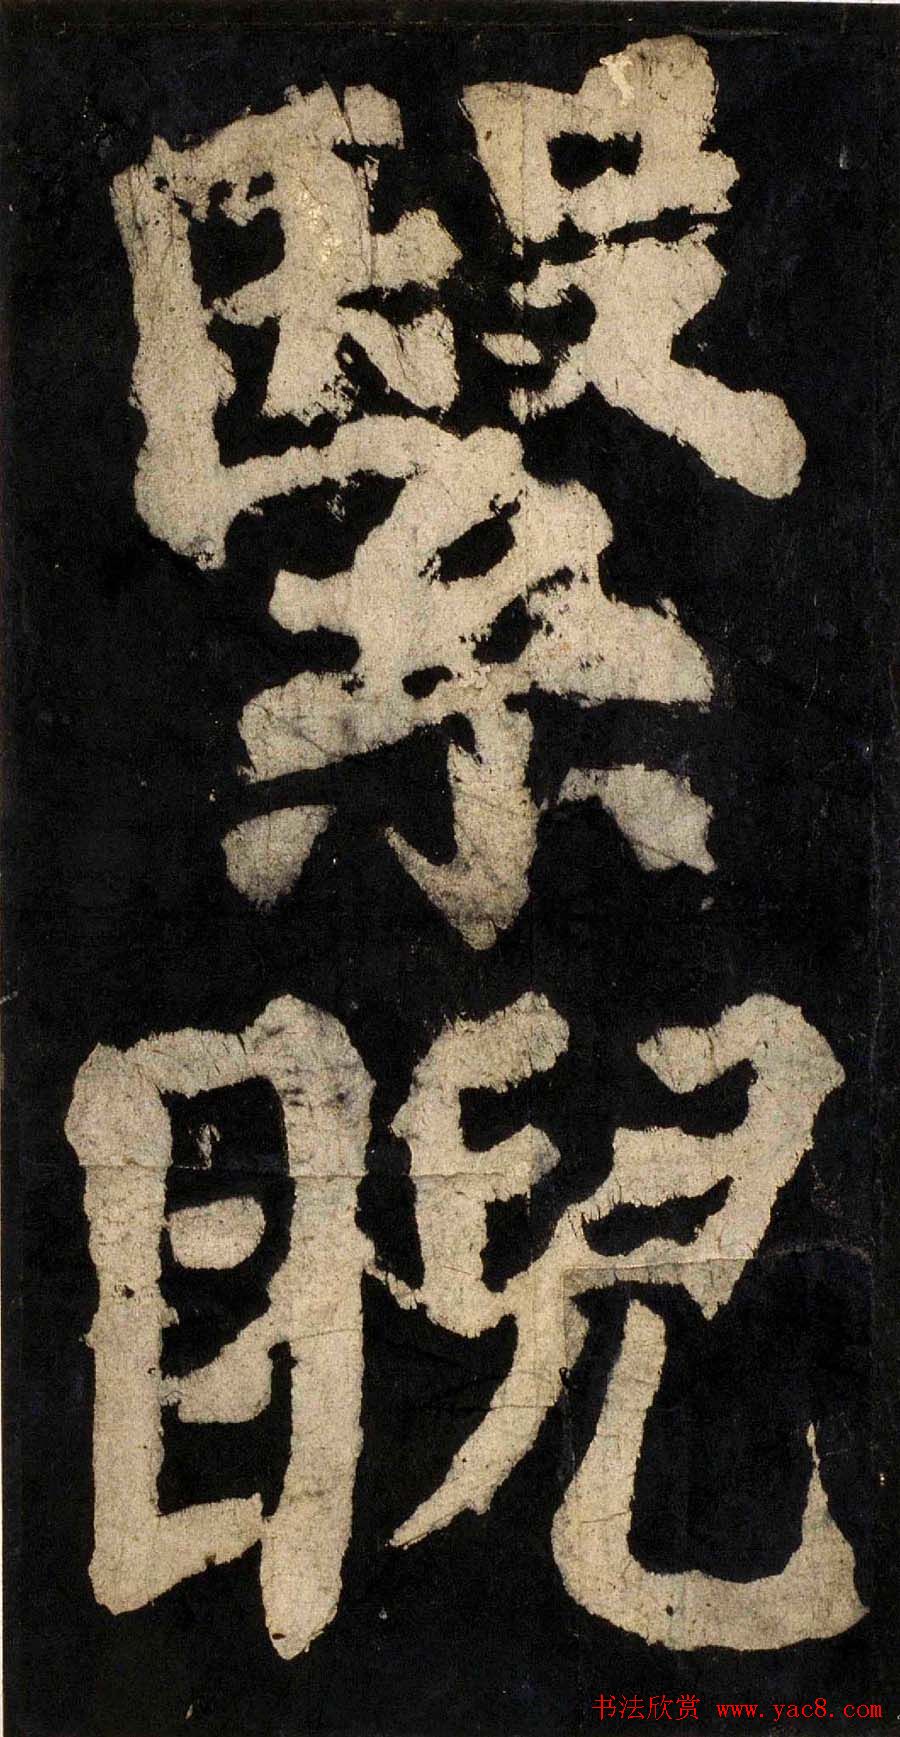 繄
睨
书法欣赏 www.yac8.com